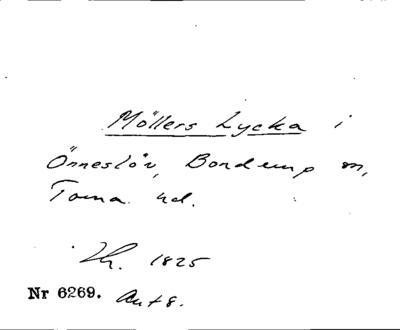 Möllers Lycka i
Önneslöv, Bonderup sn,
Torna hd.
1825
Nr 6269. Ant 8.